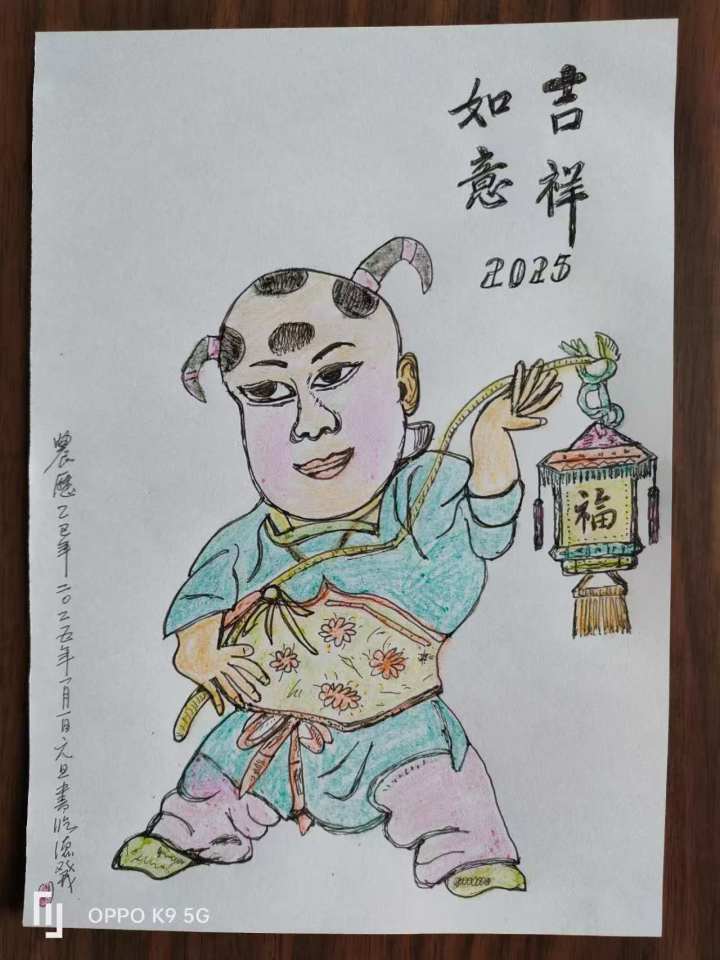 吉祥
如意
2025
福
農曆乙巳年 二〇二五年一月一日元旦書
OPPO K9 5G